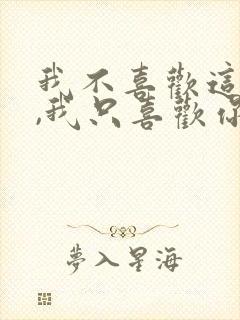 我不喜歡這
,我只喜歡你
夢入星海